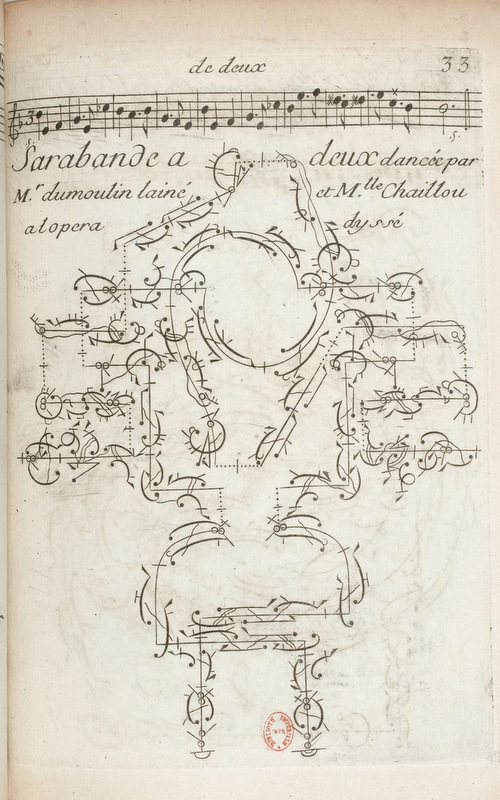 de deux 33
Sarabande a deux dancée par
M.r dumoulin lainé et M.lle Chaillou
a lopera dyssé